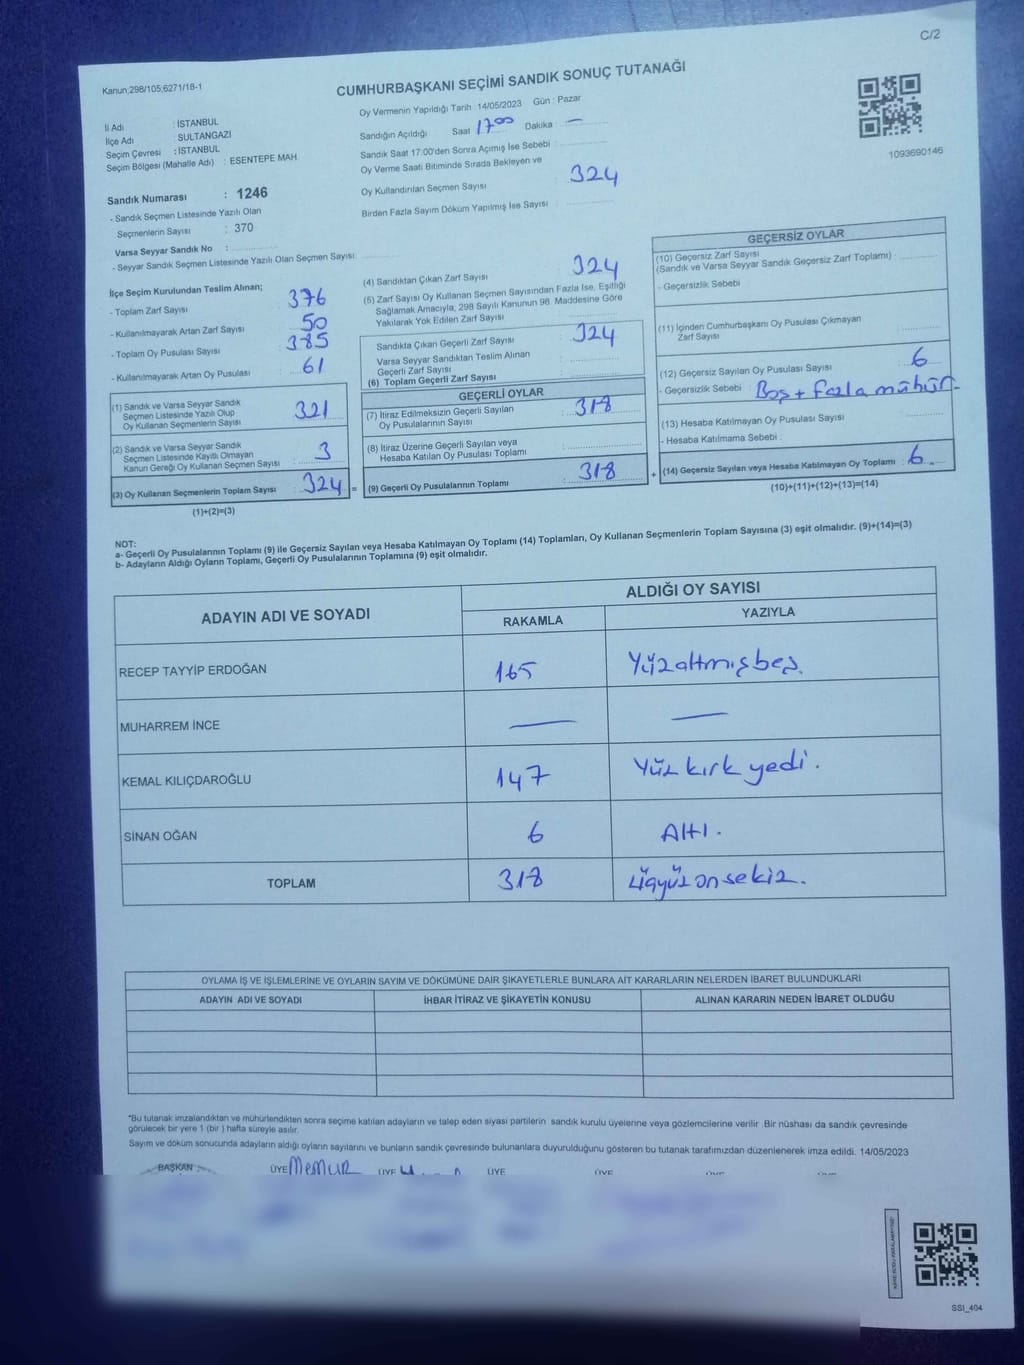 C/2
Kanun,298/105;6271/18-1
CUMHURBAŞKANI SEÇİMİ SANDIK SONUÇ TUTANAĞI
Oy Vermenin Yapıldığı Tarih : 14/05/2023 Gün : Pazar
İl Adı : İSTANBUL
İlçe Adı : SULTANGAZİ
Seçim Çevresi : İSTANBUL
Seçim Bölgesi (Mahalle Adı) : ESENTEPE MAH
Sandığın Açıldığı Saat 17 00 Dakika : —
Sandık Saat 17:00'den Sonra Açımış İse Sebebi :
Oy Verme Saati Bitiminde Sırada Bekleyen ve
Oy Kullandırılan Seçmen Sayısı : 324
Birden Fazla Sayım Döküm Yapılmış İse Sayısı :
1093690146
Sandık Numarası : 1246
- Sandık Seçmen Listesinde Yazılı Olan
Seçmenlerin Sayısı : 370
Varsa Seyyar Sandık No :
- Seyyar Sandık Seçmen Listesinde Yazılı Olan Seçmen Sayısı:
İlçe Seçim Kurulundan Teslim Alınan;
- Toplam Zarf Sayısı : 376
- Kullanılmayarak Artan Zarf Sayısı : 50
- Toplam Oy Pusulası Sayısı : 385
- Kullanılmayarak Artan Oy Pusulası : 61
(1) Sandık ve Varsa Seyyar Sandık
Seçmen Listesinde Yazılı Olup
Oy Kullanan Seçmenlerin Sayısı : 321
(2) Sandık ve Varsa Seyyar Sandık
Seçmen Listesinde Kayıtlı Olmayan
Kanun Gereği Oy Kullanan Seçmen Sayısı : 3
(3) Oy Kullanan Seçmenlerin Toplam Sayısı : 324 =
(1)+(2)=(3)
(4) Sandıktan Çıkan Zarf Sayısı : 324
(5) Zarf Sayısı Oy Kullanan Seçmen Sayısından Fazla İse, Eşitliği
Sağlamak Amacıyla, 298 Sayılı Kanunun 98. Maddesine Göre
Yakılarak Yok Edilen Zarf Sayısı :
Sandıkta Çıkan Geçerli Zarf Sayısı : 324
Varsa Seyyar Sandıktan Teslim Alınan
Geçerli Zarf Sayısı :
(6) Toplam Geçerli Zarf Sayısı :
GEÇERLİ OYLAR
(7) İtiraz Edilmeksizin Geçerli Sayılan
Oy Pusulalarının Sayısı : 318
(8) İtiraz Üzerine Geçerli Sayılan veya
Hesaba Katılan Oy Pusulası Toplamı :
(9) Geçerli Oy Pusulalarının Toplamı : 318 +
GEÇERSİZ OYLAR
(10) Geçersiz Zarf Sayısı
(Sandık ve Varsa Seyyar Sandık Geçersiz Zarf Toplamı) :
- Geçersizlik Sebebi :
(11) İçinden Cumhurbaşkanı Oy Pusulası Çıkmayan
Zarf Sayısı :
(12) Geçersiz Sayılan Oy Pusulası Sayısı : 6
- Geçersizlik Sebebi : Boş + fazla mühür.
(13) Hesaba Katılmayan Oy Pusulası Sayısı :
- Hesaba Katılmama Sebebi :
(14) Geçersiz Sayılan veya Hesaba Katılmayan Oy Toplamı : 6.
(10)+(11)+(12)+(13)=(14)
NOT:
a- Geçerli Oy Pusulalarının Toplamı (9) ile Geçersiz Sayılan veya Hesaba Katılmayan Oy Toplamı (14) Toplamları, Oy Kullanan Seçmenlerin Toplam Sayısına (3) eşit olmalıdır. (9)+(14)=(3)
b- Adayların Aldığı Oyların Toplamı, Geçerli Oy Pusulalarının Toplamına (9) eşit olmalıdır.
ADAYIN ADI VE SOYADI
ALDIĞI OY SAYISI
RAKAMLA YAZIYLA
RECEP TAYYİP ERDOĞAN 165 Yüzaltmışbeş.
MUHARREM İNCE — —
KEMAL KILIÇDAROĞLU 147 Yüz kırk yedi.
SİNAN OĞAN 6 Altı.
TOPLAM 318 üçyüz onsekiz.
OYLAMA İŞ VE İŞLEMLERİNE VE OYLARIN SAYIM VE DÖKÜMÜNE DAİR ŞİKAYETLERLE BUNLARA AİT KARARLARIN NELERDEN İBARET BULUNDUKLARI
ADAYIN ADI VE SOYADI İHBAR İTİRAZ VE ŞİKAYETİN KONUSU ALINAN KARARIN NEDEN İBARET OLDUĞU
*Bu tutanak imzalandıktan ve mühürlendikten sonra seçime katılan adayların ve talep eden siyasi partilerin sandık kurulu üyelerine veya gözlemcilerine verilir. Bir nüshası da sandık çevresinde
görülecek bir yere 1 (bir ) hafta süreyle asılır.
Sayım ve döküm sonucunda adayların aldığı oyların sayılarını ve bunların sandık çevresinde bulunanlara duyurulduğunu gösteren bu tutanak tarafımızdan düzenlenerek imza edildi. 14/05/2023
BAŞKAN ÜYE Memur ÜYE ÜYE ÜYE
SSI_404